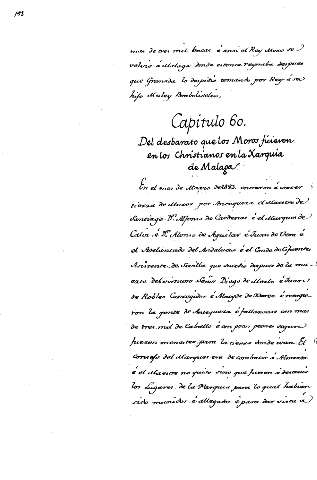 193
mas de tres mil
é assi el Rey Moro se
volvió á Malaga donde estonce reynaba despues
que Granada lo despidio tomando por Rey á su
hijo Muley Baudili
Capitulo 60.
Del desbarato que los Moros ficieron
en los Christianos en la Xarquia
de Malaga.
En el mes de Marzo de 1483. entraron á
tierra de Moros por Antequera el Maestre de
Santiago Dn. Alfonso de Cardenas é el Marques de
Caliz é Dn. Alonso de Aguilar é Juan de Vera é
el Adelantado del Andalucia é el Conde de Cifuentes
Asistente de Sevilla que
despues de la mu-
erte del
Diego de Merlo é Juan
de Robles Corregidor é Alcayde de Xerez é
ron la gente de Antequera é fallaronse con mas
de tres mil de Caballo é con pocos peones
fueron
para la tierra donde iban. El
consejo del Marques era de combatir á Almoxia
é el Maestre no quiso sino que fuesen á destruir
los Lugares de la Xarquia para lo qual habian
sido
é allegados é para dar vista á